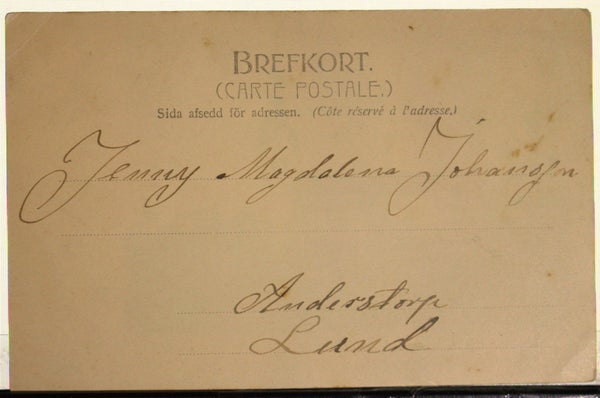 BREFKORT.
(CARTE POSTALE.)
Sida afsedd för adressen. (Côte réservé à l'adresse.)
Jenny Magdalena Johansen
Anderstorp
Lund